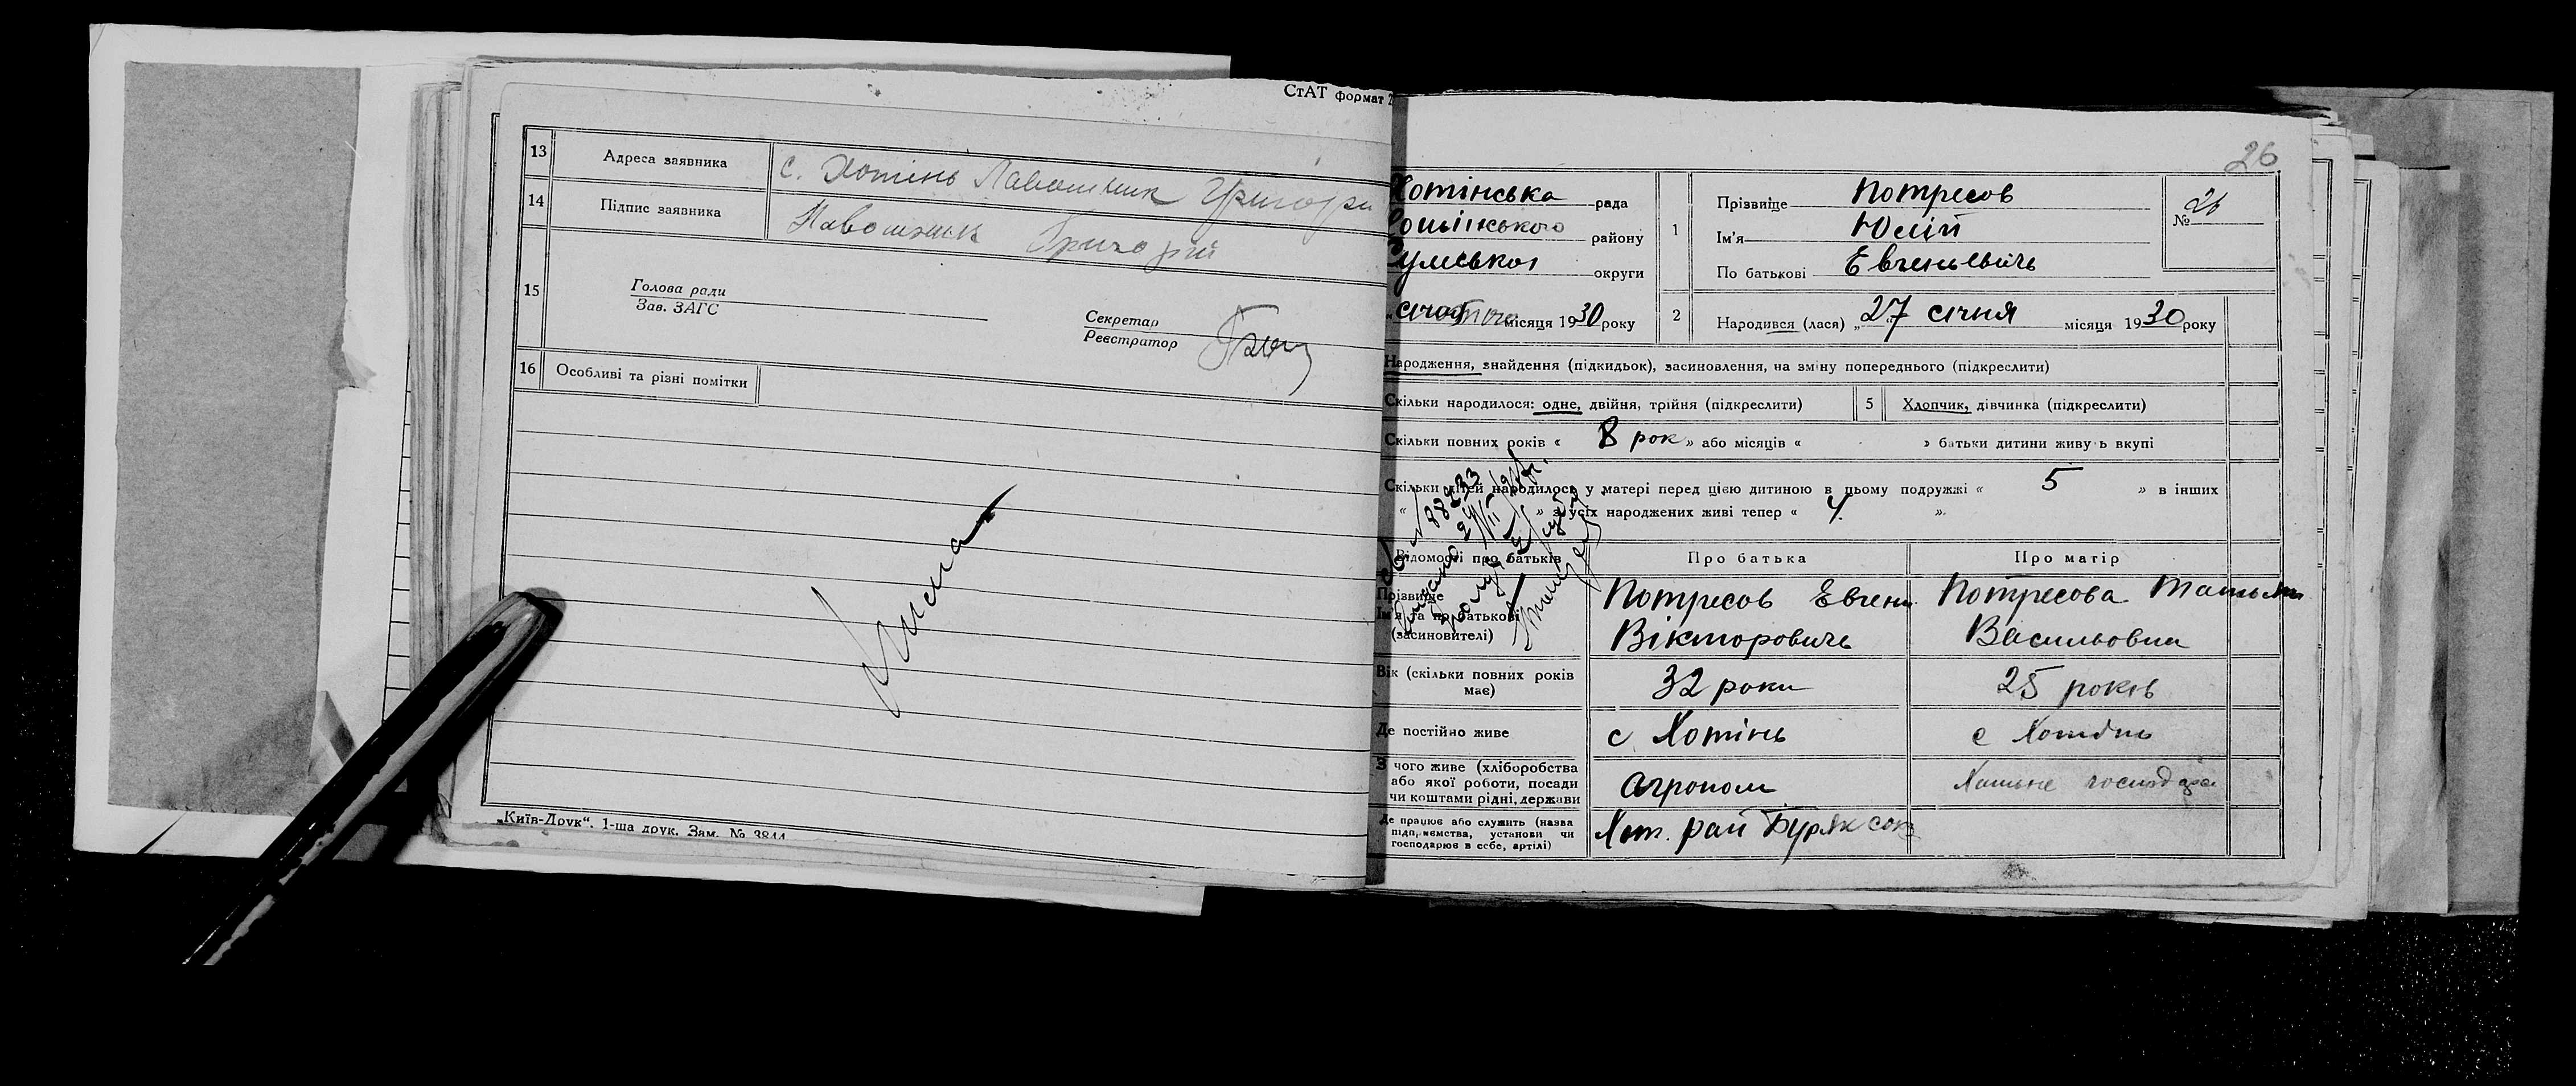 СтАТ формат
13 Адреса заявника с. Хотінь Григори
14 Підпис заявника Григорій
15 Голова ради
Зав. ЗАГС
Секретар
Реєстратор
16 Особливі та різні помітки
„Київ-Друк“. 1-ша друк. Зам. № 3844
26
Хотінська рада
району
Сумської округи
місяця 1930 року
1 Прізвище Потресов
Ім'я Юлій
По батькові Евгеньевичь
№ 26
2 Народився (лася) „27“ січня місяця 1930 року
Народження, знайдення (підкидьок), засиновлення, на зміну попереднього (підкреслити)
Скільки народилося: одне, двійня, трійня (підкреслити) 5 Хлопчик, дівчинка (підкреслити)
Скільки повних років « 8 рок » або місяців « » батьки дитини живуть вкупі
Скільки дітей народилось у матері перед цією дитиною в цьому подружжі « 5 » в інших
« » з усіх народжених живі тепер « 4 »
88233
Відомості про батьків Про батька Про матір
Прізвище
Ім'я та по батькові
(засиновителі)
Потресов Евгени Потресова
Вікторовичь Васильовна
Вік (скільки повних років
має)
32 роки 25 років
Де постійно живе с Хотінь с Хотінь
З чого живе (хліборобства
або якої роботи, посади
чи коштами рідні, держави
агроном
Де працює або служить (назва
підприємства, установи чи
господарює в себе, артілі)
Хот. рай Буряк